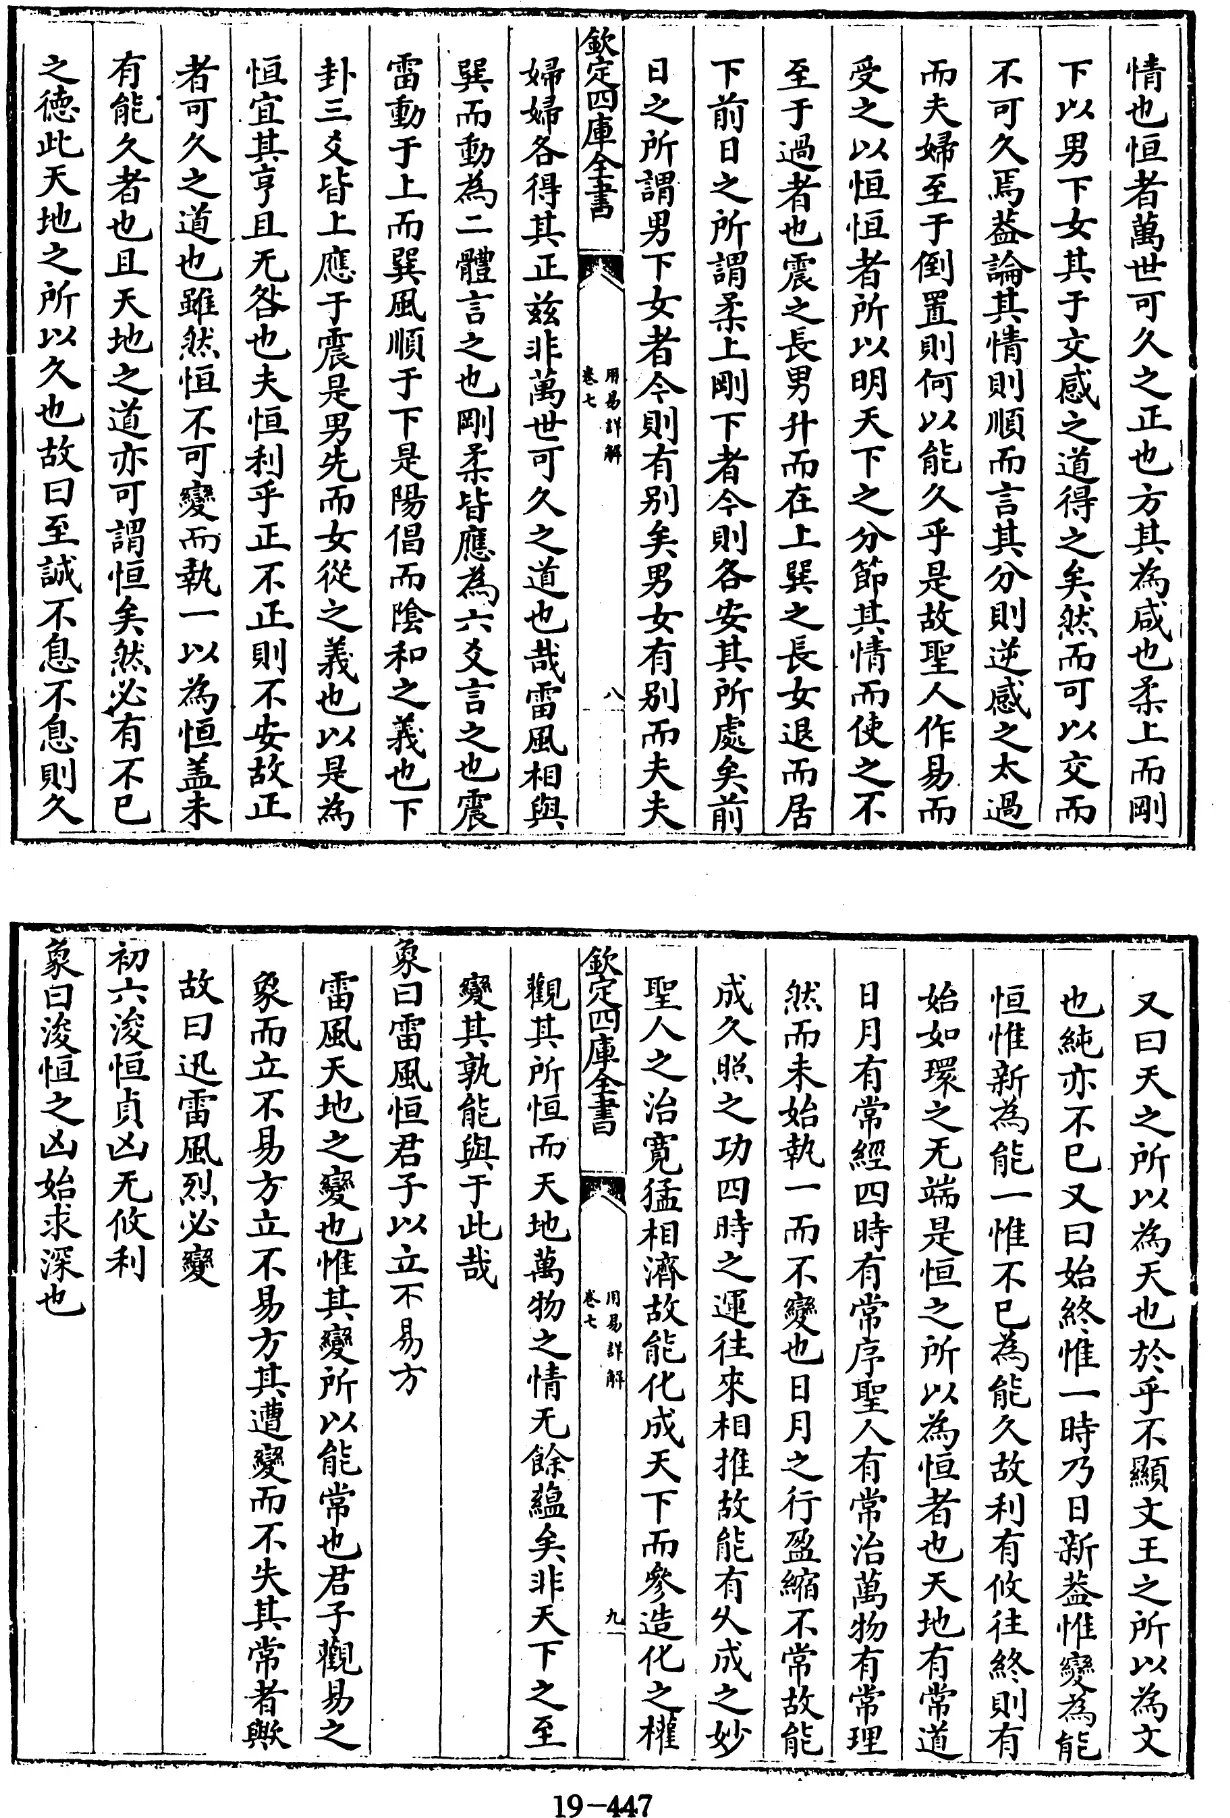 情也恒者萬世可久之正也方其為咸也柔上而剛
下以男下女其于交感之道得之矣然而可以交而
不可久焉葢論其情則順而言其分則逆感之太過
而夫婦至于倒置則何以能久乎是故聖人作易而
受之以恒恒者所以明天下之分節其情而使之不
至于過者也震之長男升而在上巽之長女退而居
下前日之所謂柔上剛下者今則各安其所處矣前
日之所謂男下女者今則有别矣男女有别而夫夫
欽定四庫全書
用易詳解
卷七
八
婦婦各得其正兹非萬世可久之道也哉雷風相與
巽而動為二體言之也剛柔皆應為六爻言之也震
雷動于上而巽風順于下是陽倡而陰和之義也下
卦三爻皆上應于震是男先而女從之義也以是為
恒宜其亨且无咎也夫恒利乎正不正則不安故正
者可久之道也雖然恒不可變而執一以為恒盖未
有能久者也且天地之道亦可謂恒矣然必有不已
之徳此天地之所以久也故曰至誠不息不息則久
又曰天之所以為天也於乎不顯文王之所以為文
也純亦不已又曰始終惟一時乃日新葢惟變為能
恒惟新為能一惟不已為能久故利有攸往終則有
始如環之无端是恒之所以為恒者也天地有常道
日月有常經四時有常序聖人有常治萬物有常理
然而未始執一而不變也日月之行盈縮不常故能
成久照之功四時之運往來相推故能有久成之妙
聖人之治寛猛相濟故能化成天下而參造化之權
欽定四庫全書
用易詳解
卷七
九
觀其所恒而天地萬物之情无餘蘊矣非天下之至
變其孰能與于此哉
象曰雷風恒君子以立不易方
雷風天地之變也惟其變所以能常也君子觀易之
象而立不易方立不易方其遭變而不失其常者歟
故曰迅雷風烈必變
初六浚恒貞凶无攸利
象曰浚恒之凶始求深也
19-447